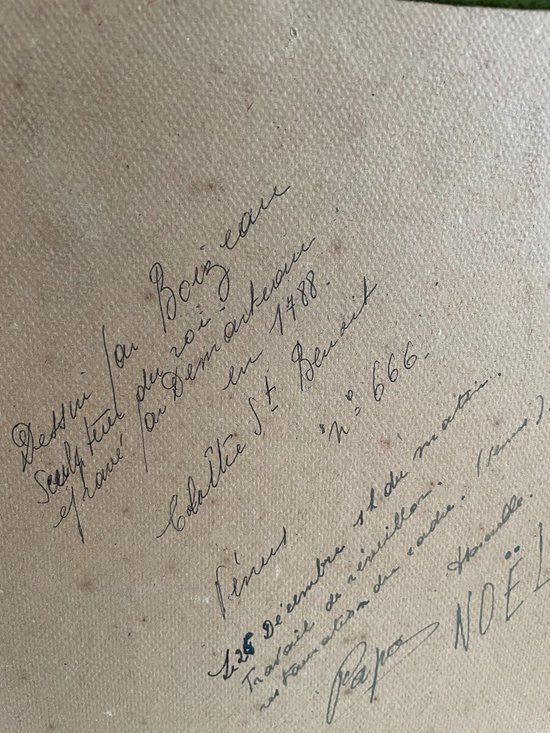 Dessiné par Boizeau
Sculpteur du roi.
gravé par Demarteau
en 1788.
Cloître St Benoit
n° 666.
Vénus.
Le 25 Décembre 1h du matin.
Travail de réveillon.
restauration du cadre. (Vénus)
Papa
NOËL